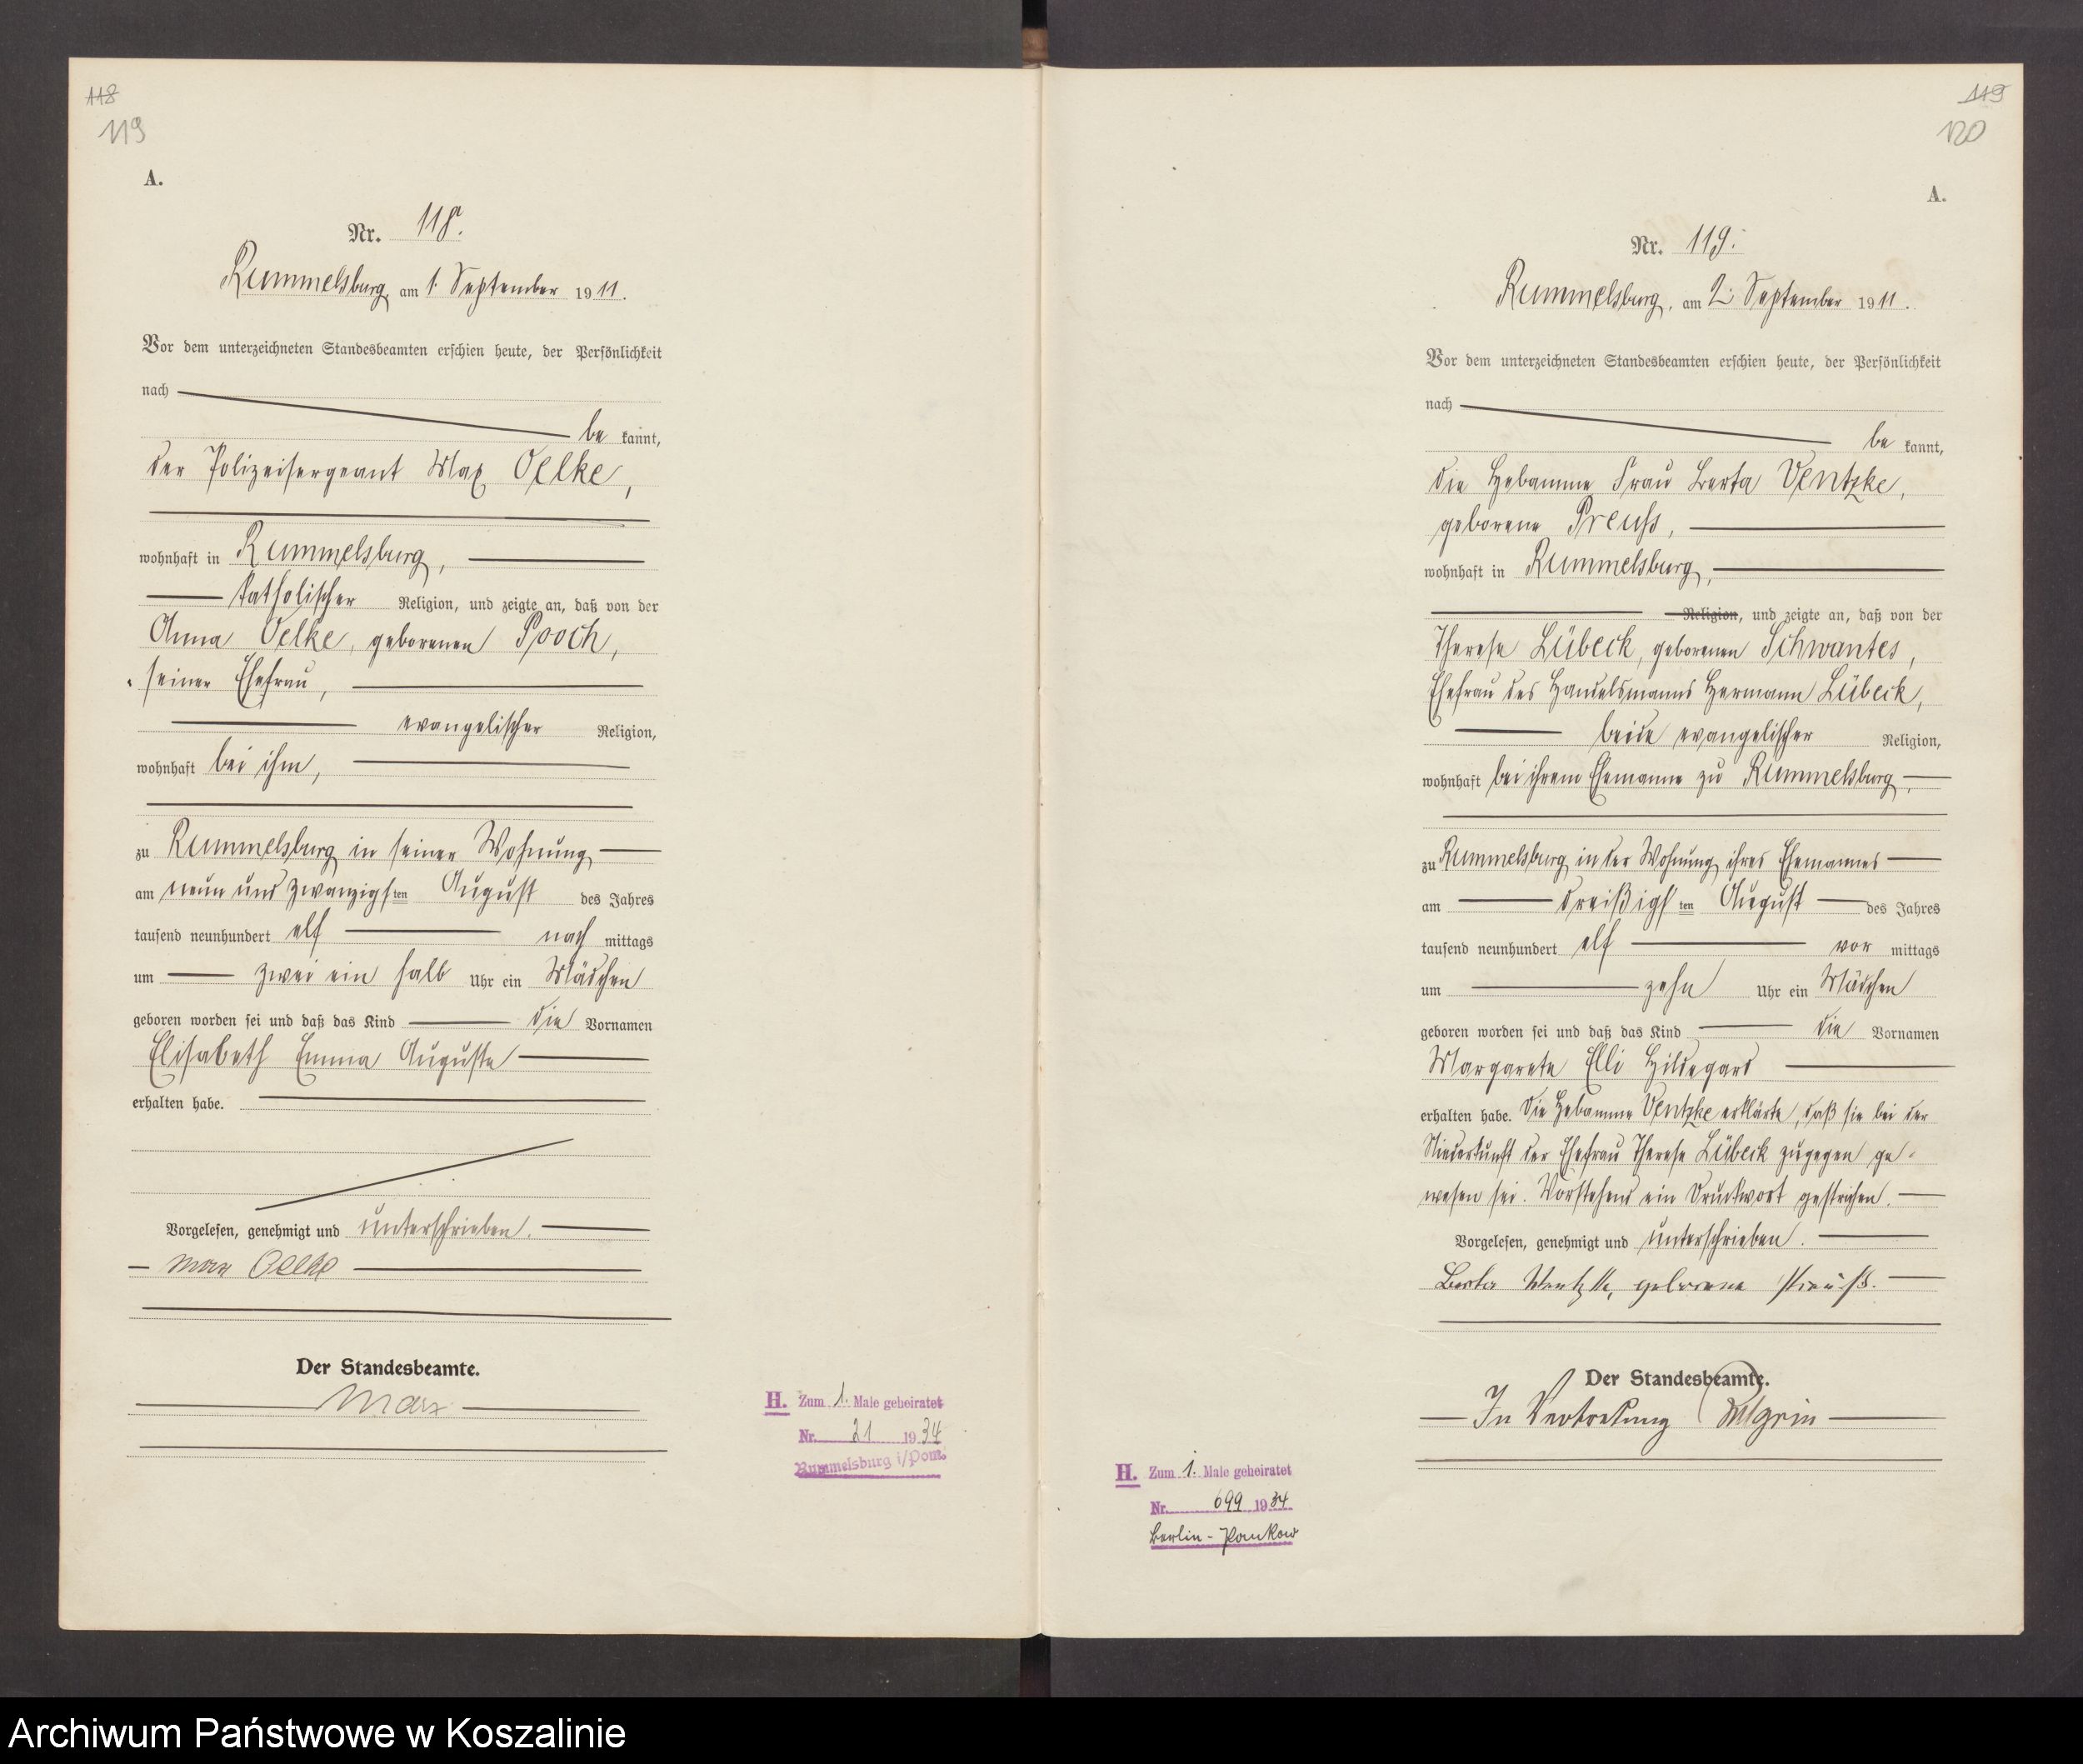 118
119
A.
Nr. 118.
Rummelsburg, am 1. September 1911.
Vor dem unterzeichneten Standesbeamten erschien heute, der Persönlichkeit
nach
be kannt,
der Polizeisergeant Max Oelke,
wohnhaft in Rummelsburg,
katholischer Religion, und zeigte an, daß von der
Anna Oelke, geborenen Pooch,
seiner Ehefrau,
evangelischer Religion,
wohnhaft bei ihm,
zu Rummelsburg in seiner Wohnung
am neun und zwanzigsten August des Jahres
tausend neunhundert elf nach mittags
um zwei ein halb Uhr ein Mädchen
geboren worden sei und daß das Kind die Vornamen
Elisabeth Emma Auguste
erhalten habe.
Vorgelesen, genehmigt und unterschrieben.
Max Oelke
Der Standesbeamte.
Marx
H. Zum 1. Male geheiratet
Nr. 21 1934
Rummelsburg i/Pom.
119
120
A.
Nr. 119.
Rummelsburg, am 2. September 1911.
Vor dem unterzeichneten Standesbeamten erschien heute, der Persönlichkeit
nach
be kannt,
die Hebamme Frau Berta Ventzke,
geborene Preuß,
wohnhaft in Rummelsburg,
Religion, und zeigte an, daß von der
Therese Lübeck, geborenen Schwantes,
Ehefrau des Handelsmanns Hermann Lübeck,
beide evangelischer Religion,
wohnhaft bei ihrem Ehemanne zu Rummelsburg,
zu Rummelsburg in der Wohnung ihres Ehemannes
am dreißigsten August des Jahres
tausend neunhundert elf vor mittags
um zehn Uhr ein Mädchen
geboren worden sei und daß das Kind die Vornamen
Margarete Elli Hildegard
erhalten habe. Die Hebamme Ventzke erklärte, daß sie bei der
Niederkunft der Ehefrau Therese Lübeck zugegen ge-
wesen sei. Vorstehend ein Druckwort gestrichen.
Vorgelesen, genehmigt und unterschrieben.
Berta Ventzke, geborene Preuß.
Der Standesbeamte.
In Vertretung
H. Zum 1. Male geheiratet
Nr. 699 1934
Berlin-Pankow
Archiwum Państwowe w Koszalinie